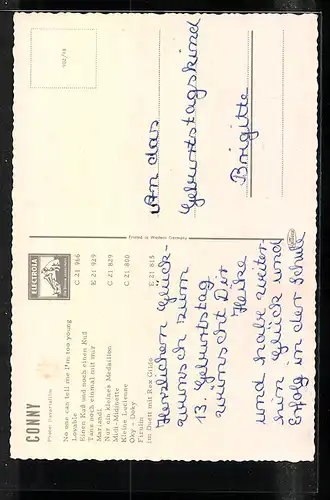 CONNY
Photo: Hesterfilm
No one can tell me I'm too young
Lovable
C 21 966
Einen Kuß und noch einen Kuß
Tanz noch einmal mit mir
E 21 929
Mariandl
Nur ein kleines Medaillon
C 21 829
Midi-Midinette
Kleine Lucienne
C 21 800
Oky - Doky
Firulin
im Duett mit Rex Gildo
E 21 815
ELECTROLA
Herzlichen Glück-
wunsch zum
13. Geburtstag
wünscht Dir
Heike
und habe weiter-
hin Glück und
Erfolg in der Schule
Printed in Western Germany
102/98
An das
Geburtstagskind
Brigitte